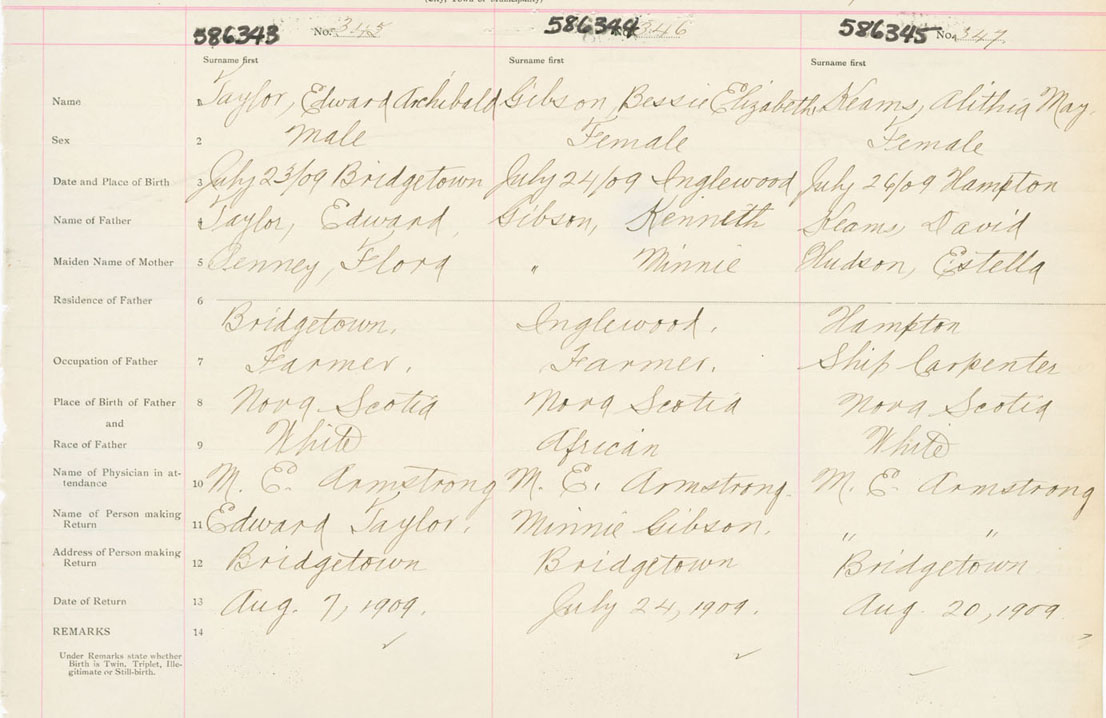 (City, Town or Municipality)
586343 No. 345 586344 346 586345 No. 347
Surname first Surname first Surname first
Name 1 Taylor, Edward Archibald Gibson, Bessie Elizabeth Keams, Alithia May.
Sex 2 Male Female Female
Date and Place of Birth 3 July 23/09 Bridgetown July 24/09 Inglewood July 26/09 Hampton
Name of Father 4 Taylor, Edward, Gibson, Kenneth Keams, David
Maiden Name of Mother 5 Penney, Flora " Minnie Hudson, Estella
Residence of Father 6
Bridgetown. Inglewood. Hampton
Occupation of Father 7 Farmer. Farmer. Ship Carpenter
Place of Birth of Father 8 Nova Scotia Nova Scotia Nova Scotia
and
Race of Father 9 White African White
Name of Physician in at-
tendance 10 M. E. Armstrong M. E. Armstrong. M. E. Armstrong
Name of Person making
Return 11 Edward Taylor. Minnie Gibson. " "
Address of Person making
Return 12 Bridgetown Bridgetown Bridgetown
Date of Return 13 Aug. 7, 1909. July 24, 1909. Aug. 20, 1909
REMARKS 14
Under Remarks state whether
Birth is Twin, Triplet, Ille-
gitimate or Still-birth.